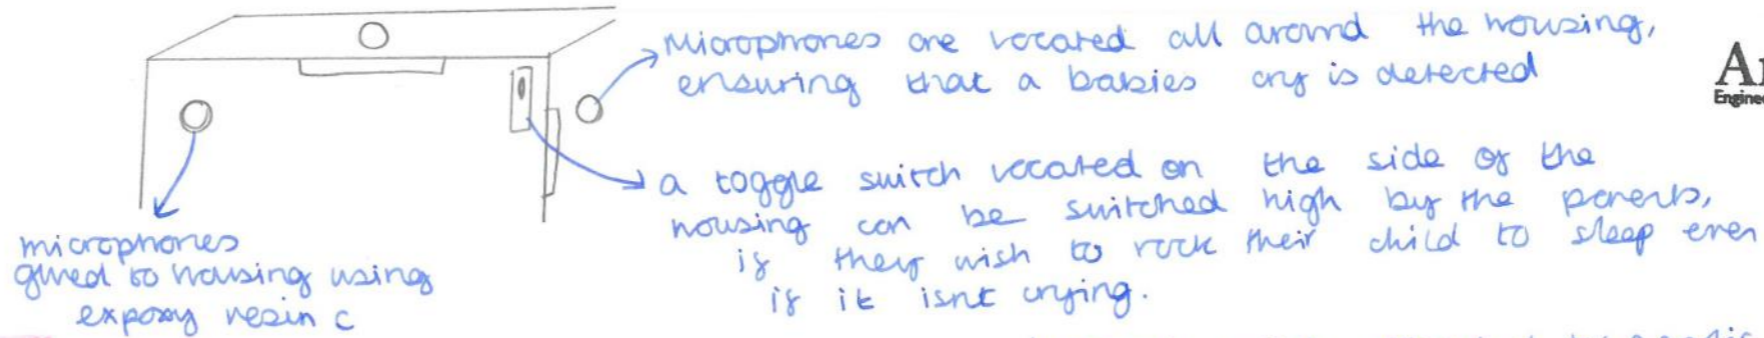 Microphones are located all around the housing,
ensuring that a babies cry is detected
a toggle switch located on the side of the
housing can be switched high by the parents,
if they wish to rock their child to sleep even
if it isnt crying.
microphones
glued to housing using
expoxy resin c
Engineer